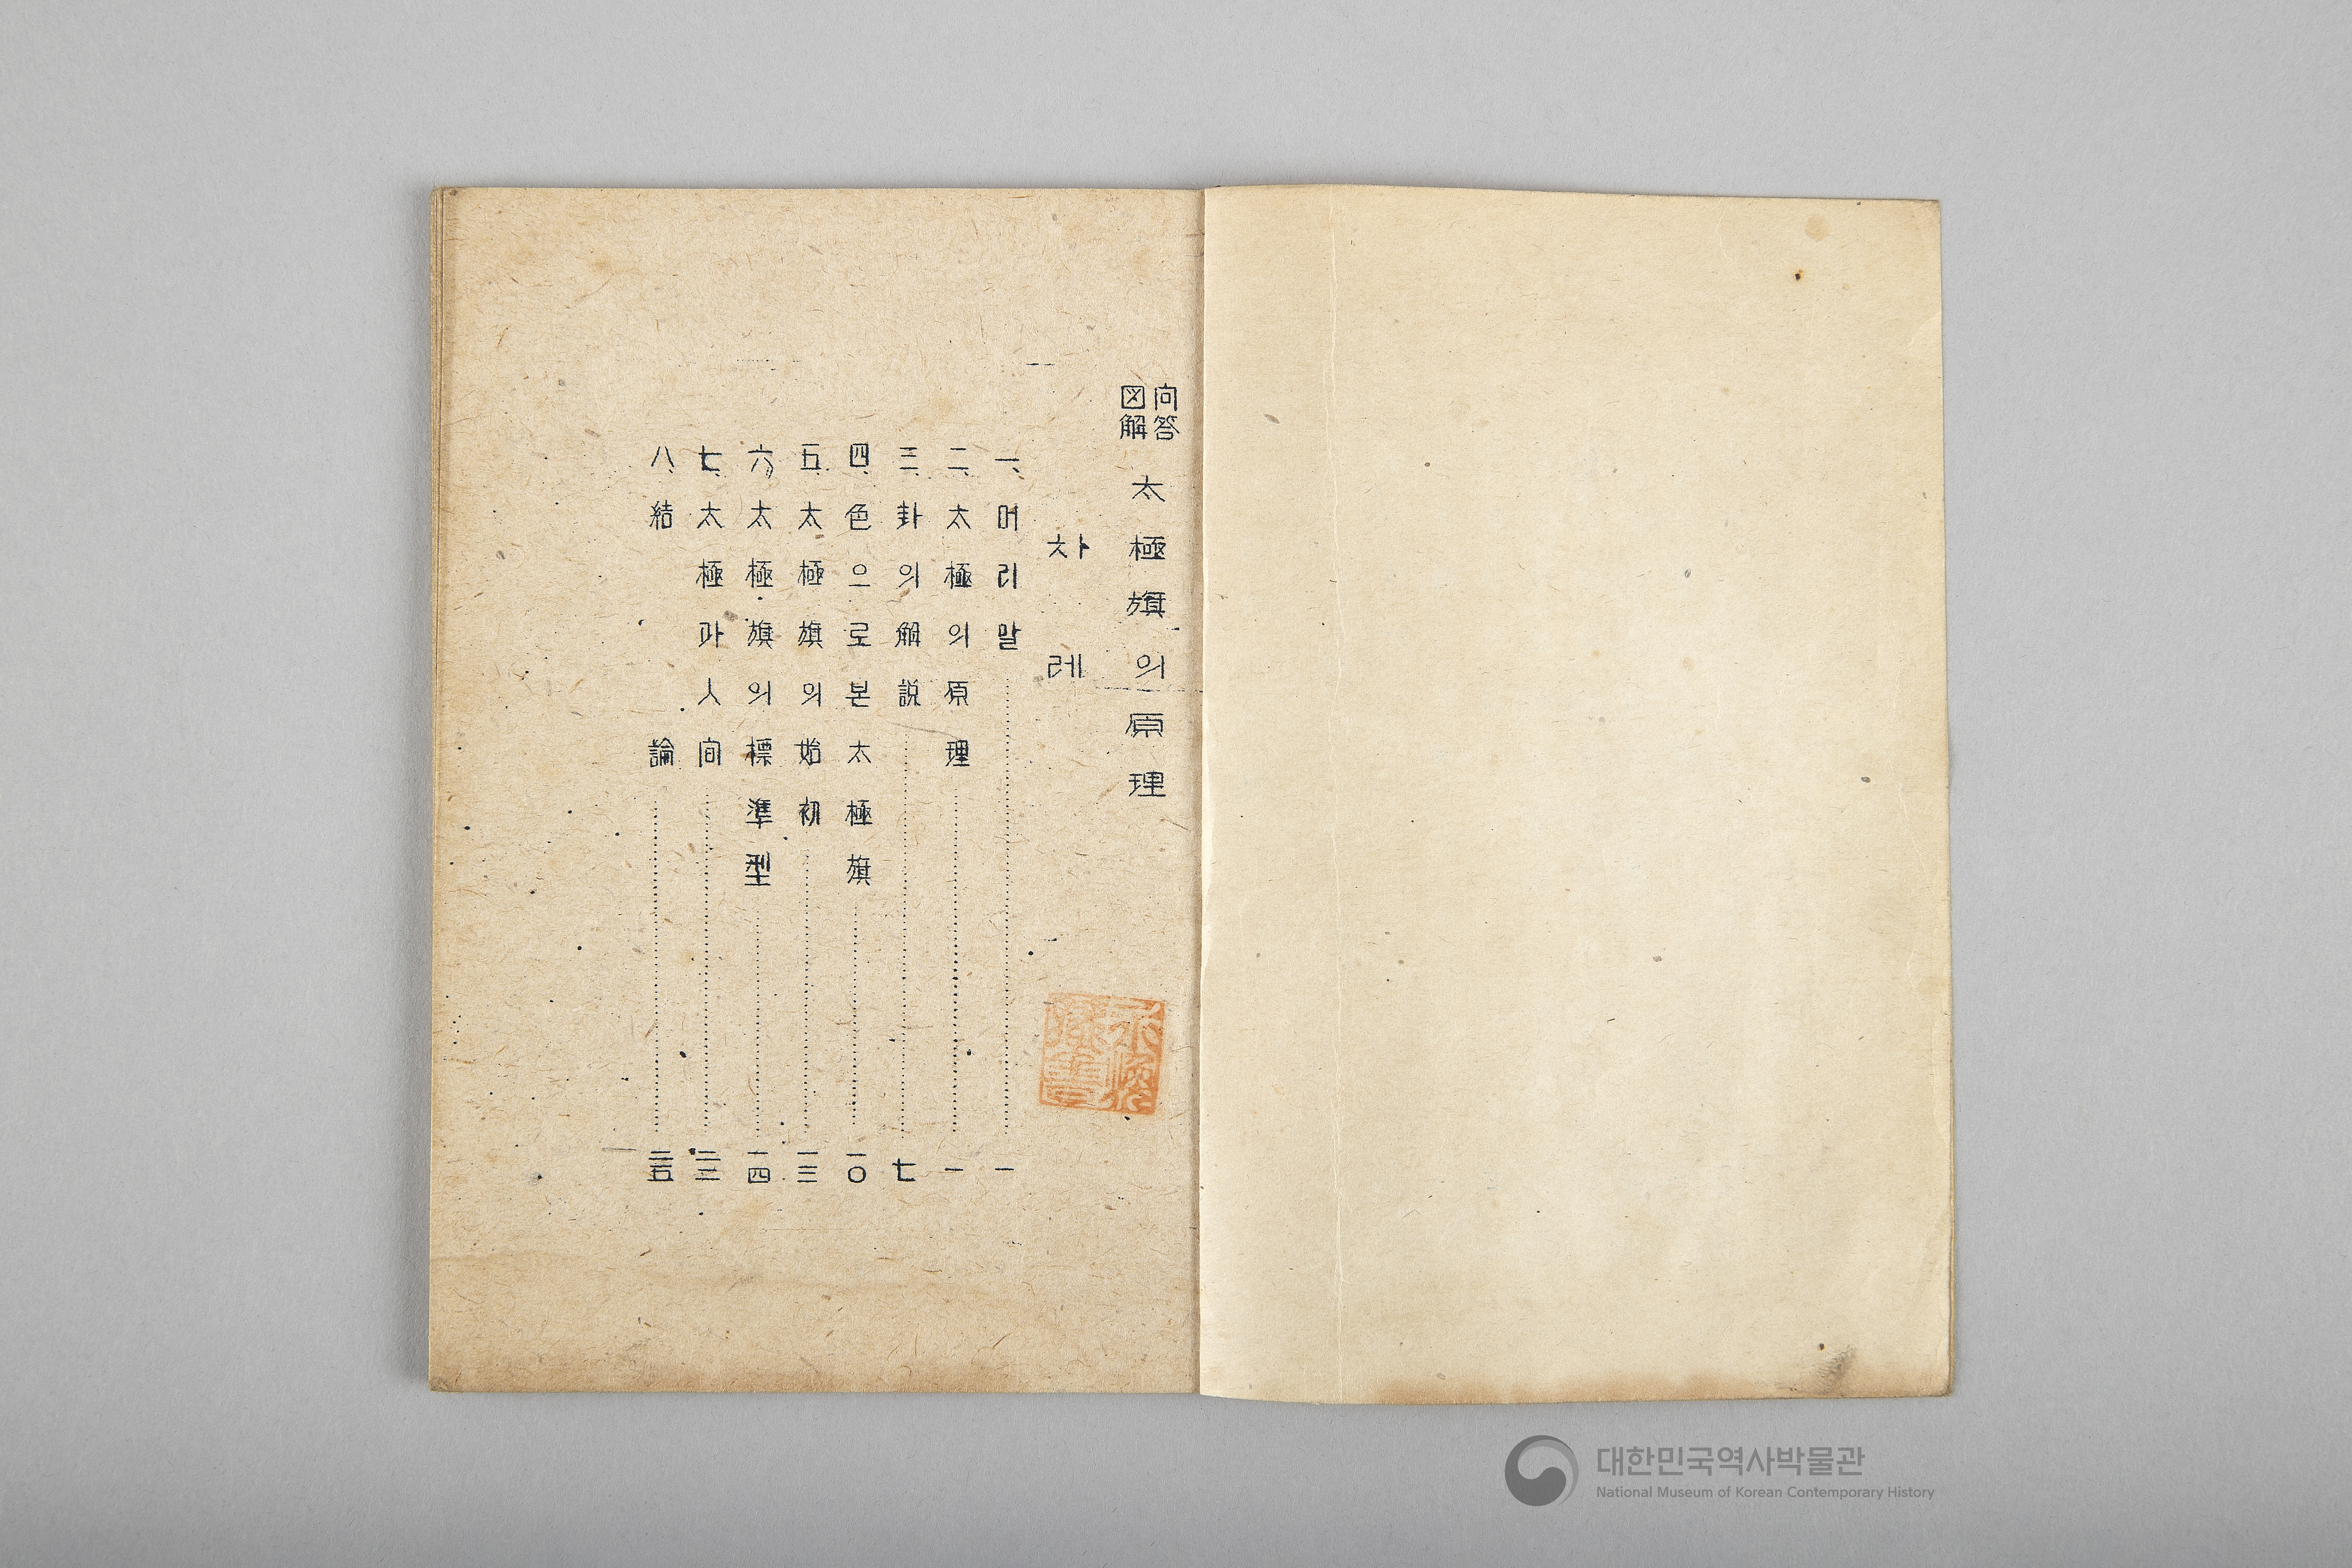 问答
図解
太極旗의原理
차례
一、머리말……一
二、太極의原理……一
三、卦의解説……七
四、色으로본太極旗……一〇
五、太極旗의始初……一三
六、太極旗의標準型……一四
七、太極과人间……
八、結論……三五
대한민국역사박물관
National Museum of Korean Contemporary History